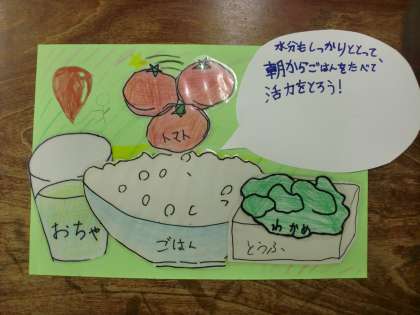 水分もしっかりととって、
朝からごはんをたべて
活力をとろう！
トマト
おちゃ
ごはん
わかめ
とうふ